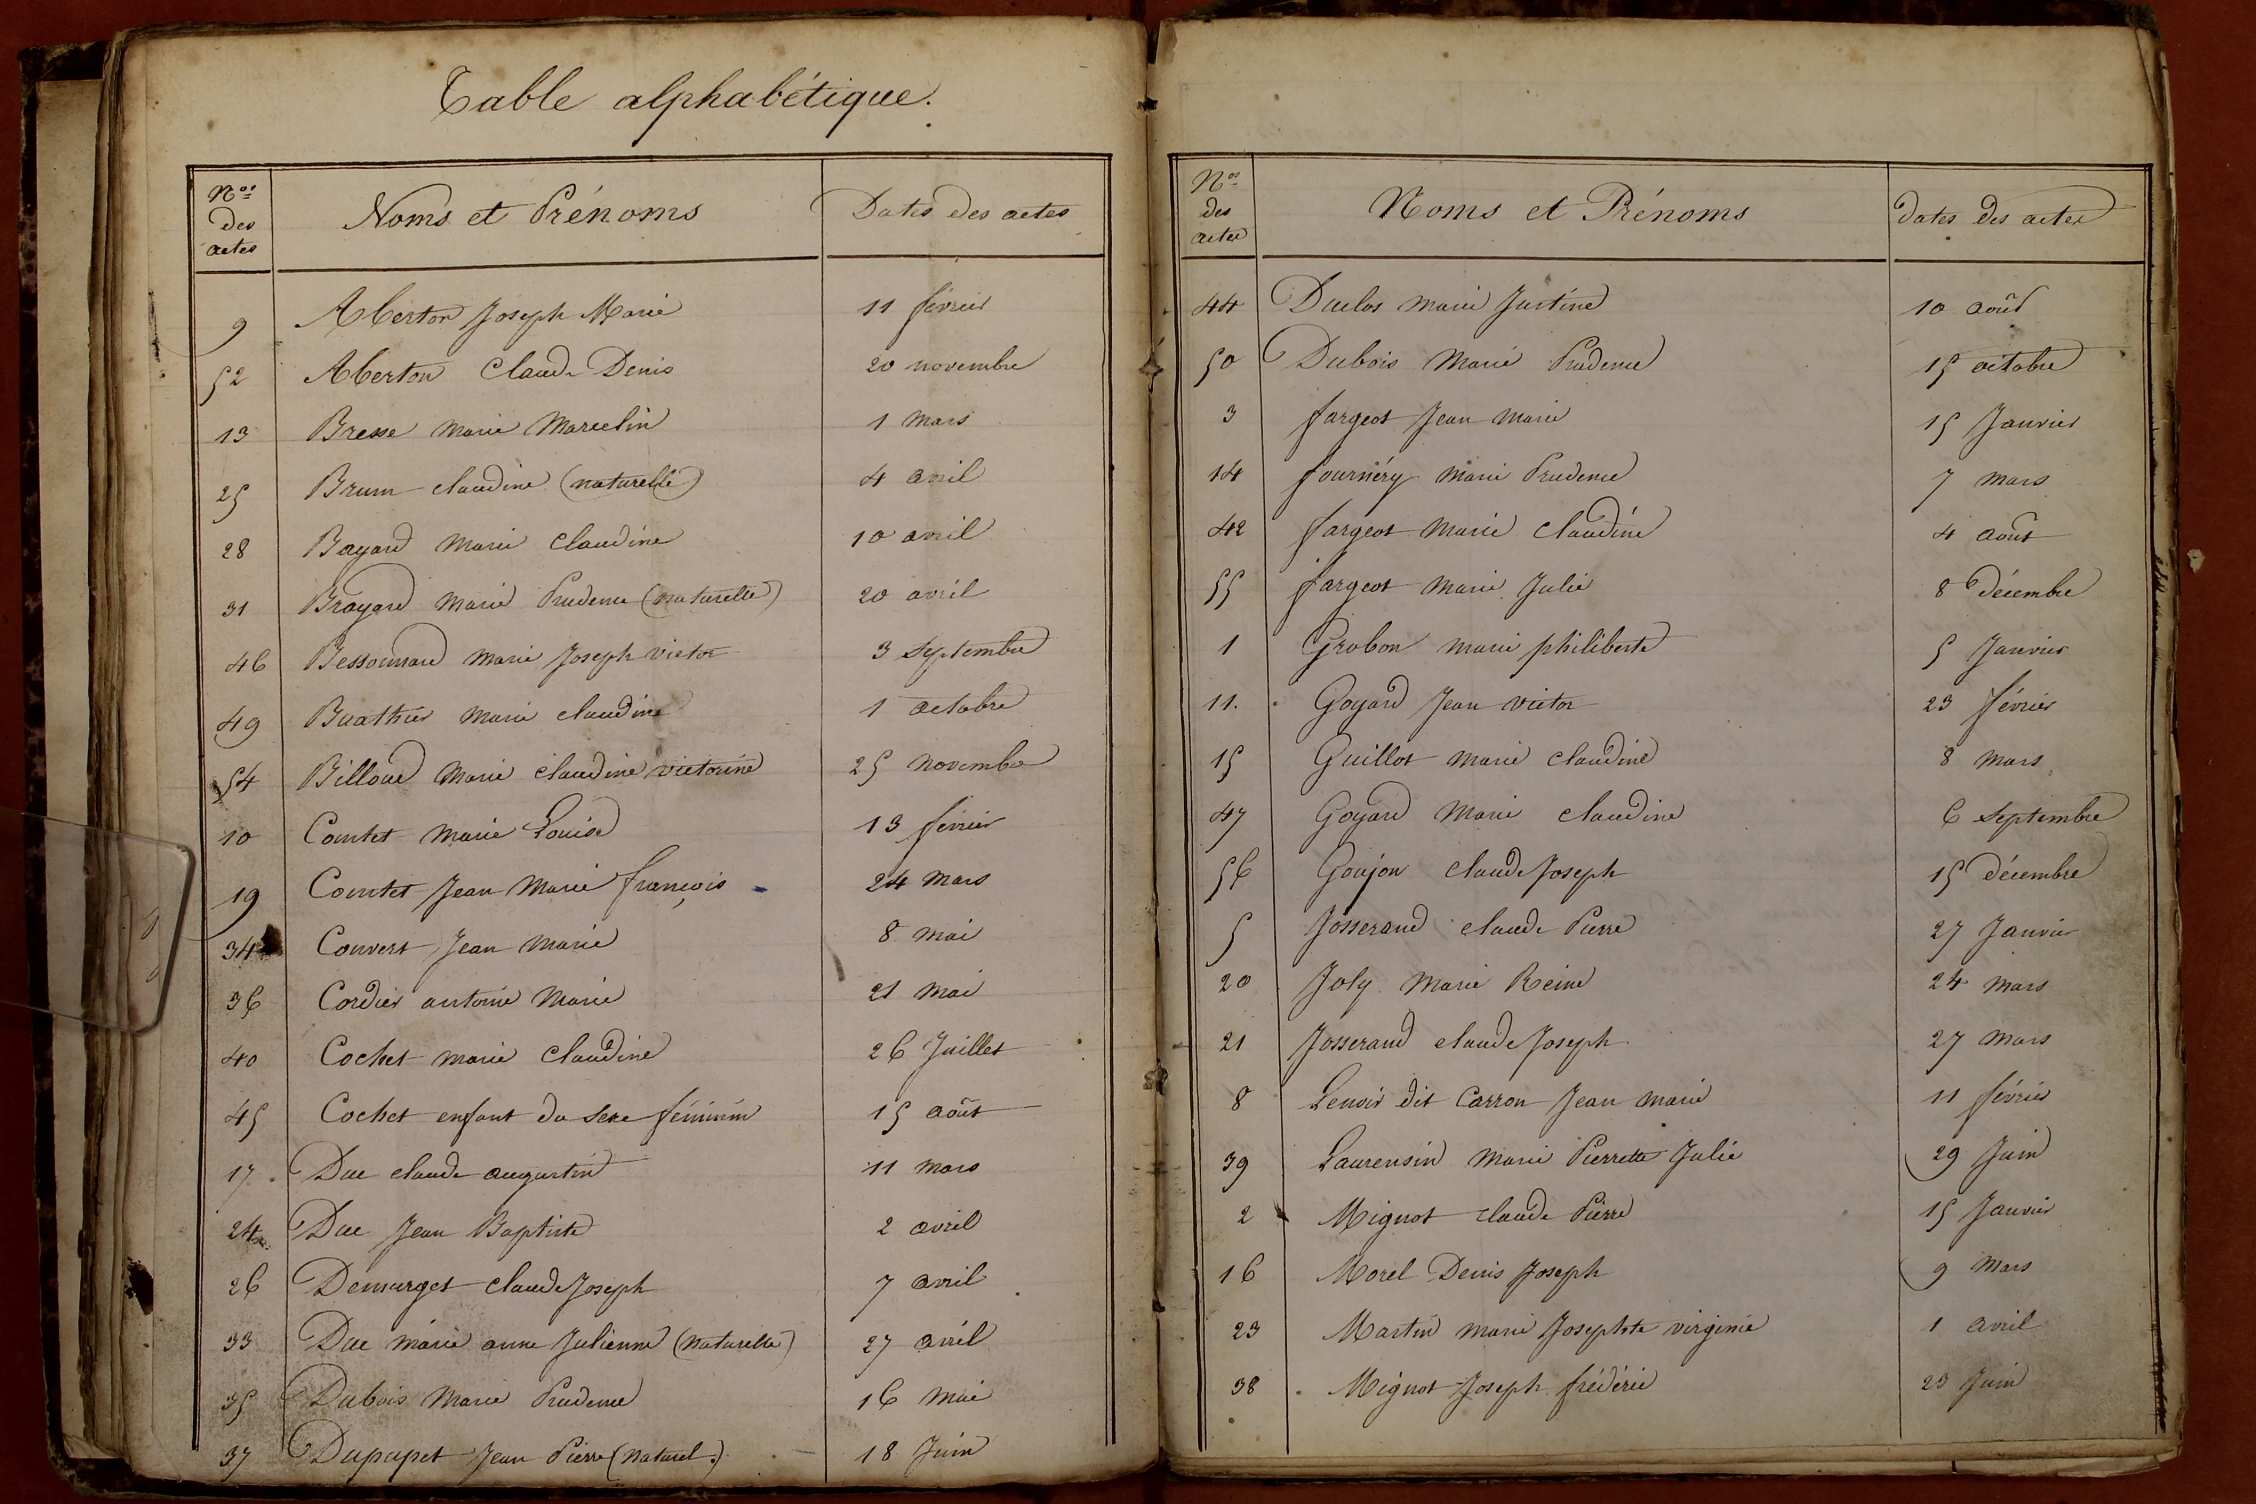 Table alphabétique.
Nos des actes Noms et Prénoms Dates des actes
9 Aberton Joseph Marie 11 février
52 Aberton Claude Denis 20 novembre
13 Bresse Marie Marcelin 1 mars
25 Brun claudine (naturelle) 4 avril
28 Bayard Marie Claudine 10 avril
31 Brayard Marie Prudence (naturelle) 20 avril
46 Bessonnard Marie Joseph victor 3 Septembre
49 Buathier Marie claudine 1 octobre
54 Billoud Marie claudine victorine 25 novembre
10 Comtet Marie Louise 13 février
19 Comtet Jean Marie françois 24 mars
34 Convert Jean Marie 8 mai
36 Cordier antoine Marie 21 mai
40 Cochet marie Claudine 26 Juillet
45 Cochet enfant du sexe féminin 15 août
17. Duc claude augustin 11 mars
24 Duc Jean Baptiste 2 avril
26 Demurget claude Joseph 7 avril
33 Duc marie anne Julienne (naturelle) 27 avril
35 Dubois Marie Prudence 16 mai
37 Dupupet Jean Pierre (naturel.) 18 Juin
Nos des actes Noms et Prénoms Dates des actes
44 Duclos Marie Justine 10 août
50 Dubois Marie Prudence 15 octobre
3 fargeot Jean Marie 15 Janvier
14 fournéry Marie Prudence 7 mars
42 fargeot Marie Claudine 4 août
55 fargeot Marie Julie 8 décembre
1 Grobon marie philiberte 5 Janvier
11. Goyard Jean victor 23 février
15 Guillot marie claudine 8 mars
47 Goyard Marie claudine 6 Septembre
56 Goujon claude Joseph 15 décembre
5 Josserand claude Pierre 27 Janvier
20 Joly Marie Reine 24 mars
21 Josserand claude Joseph 27 mars
8 Lenoir dit Carron Jean Marie 11 février
39 Laurensin Marie Pierrette Julie 29 Juin
2 Mignot claude Pierre 15 Janvier
16 Morel Denis Joseph 9 Mars
23 Martin marie Josephte virginie 1 avril
38 Mignot Joseph frédéric 23 Juin